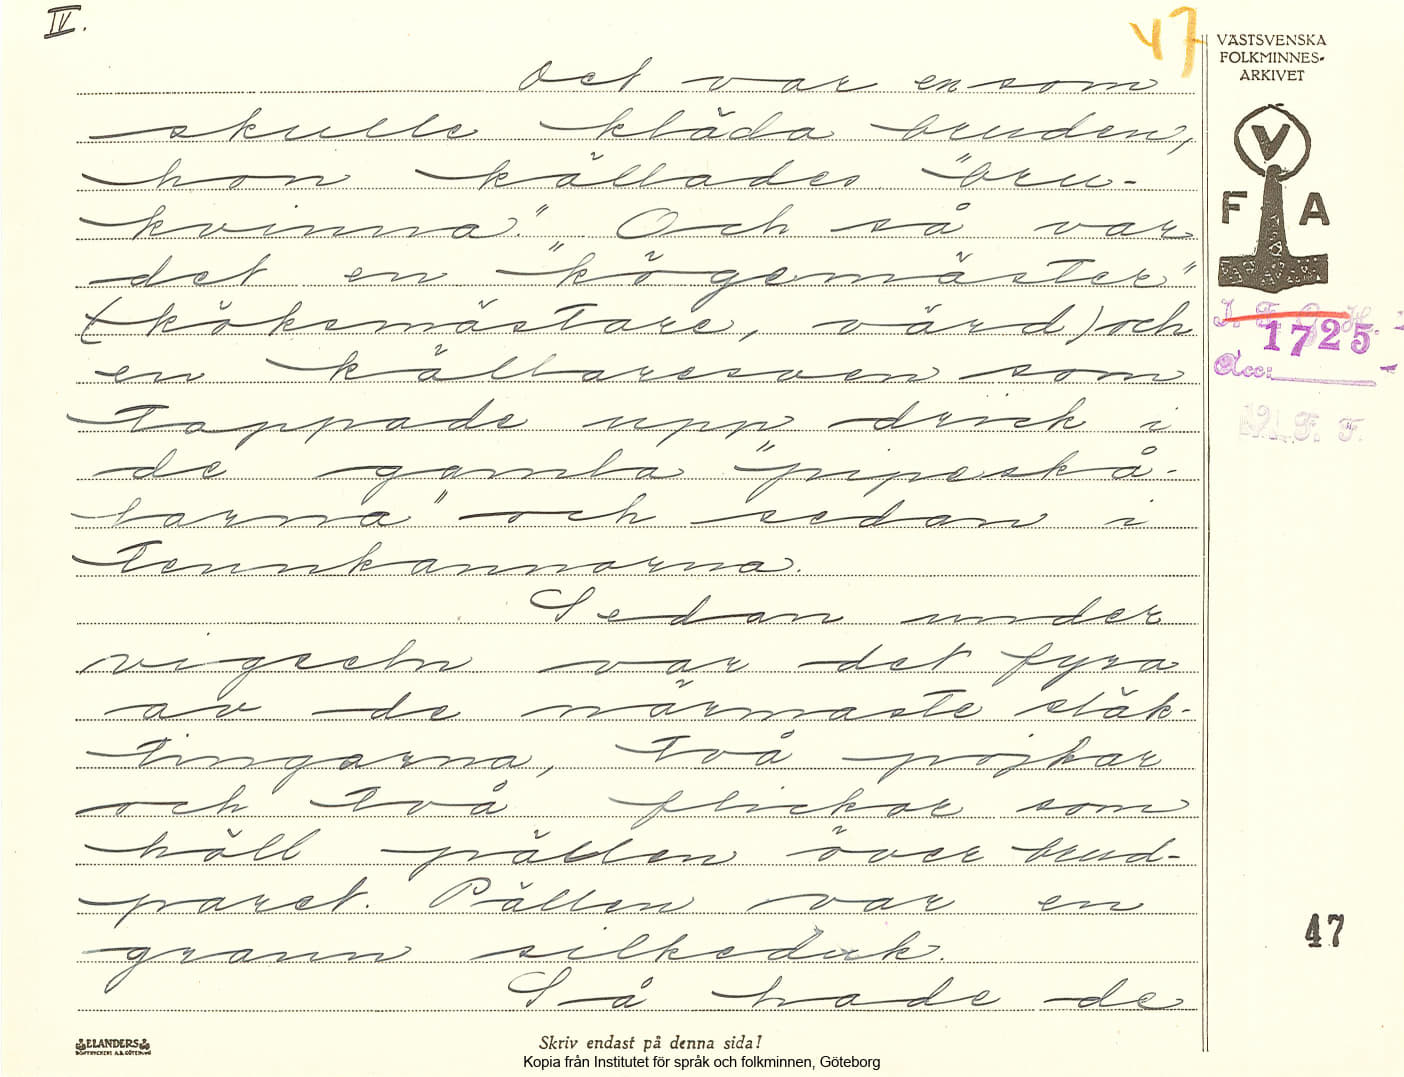 IV.
47
VÄSTSVENSKA
FOLKMINNES-
ARKIVET
V
F A
1725
Acc:
Det var en som
skulle kläda bruden,
hon kållades "bru-
kvinna". Och så var
det en "kögemäster"
(köksmästare, värd) och
en källaresven som
tappade upp drick i
de gamla "pipeskå-
larna" och sedan i
tennkannorna.
Sedan under
vigseln var det fyra
av de närmaste släk-
tingarna, två pojkar
och två flickor som
höll pällen över brud-
paret. Pällen var en
grann silkeduk.
Så hade de
47
ELANDERS
Skriv endast på denna sida!
Kopia från Institutet för språk och folkminnen, Göteborg